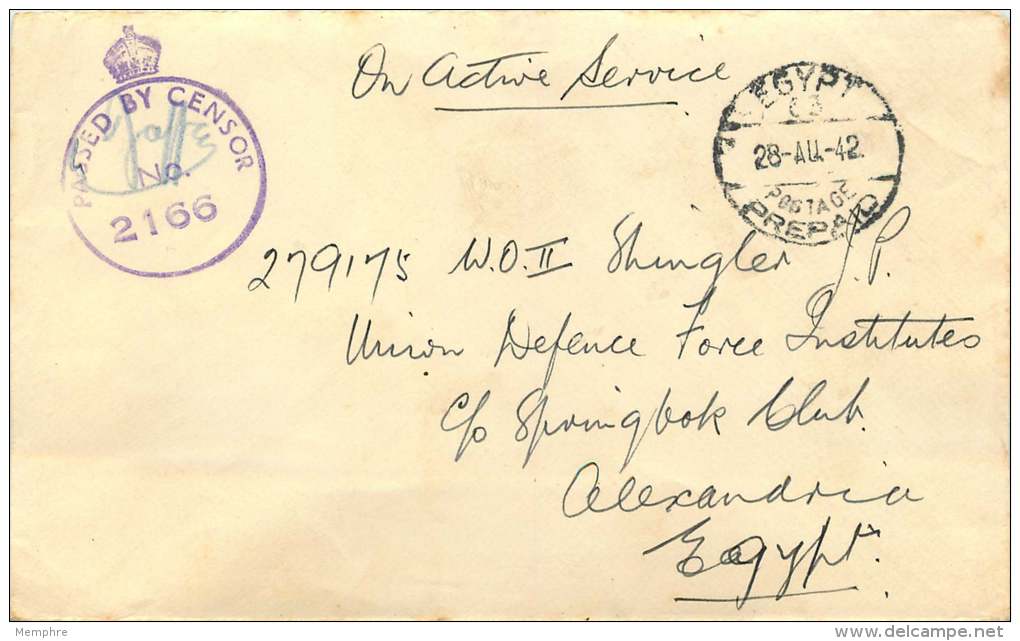 On Active Service
PASSED BY CENSOR
No.
2166
EGYPT
28-AU-42
POSTAGE
PREPAID
279175 W.O.II Shingler J.P.
Union Defence Force Institutes
c/o Springbok Club.
Alexandria
Egypt.
Memphre
www.delcampe.net